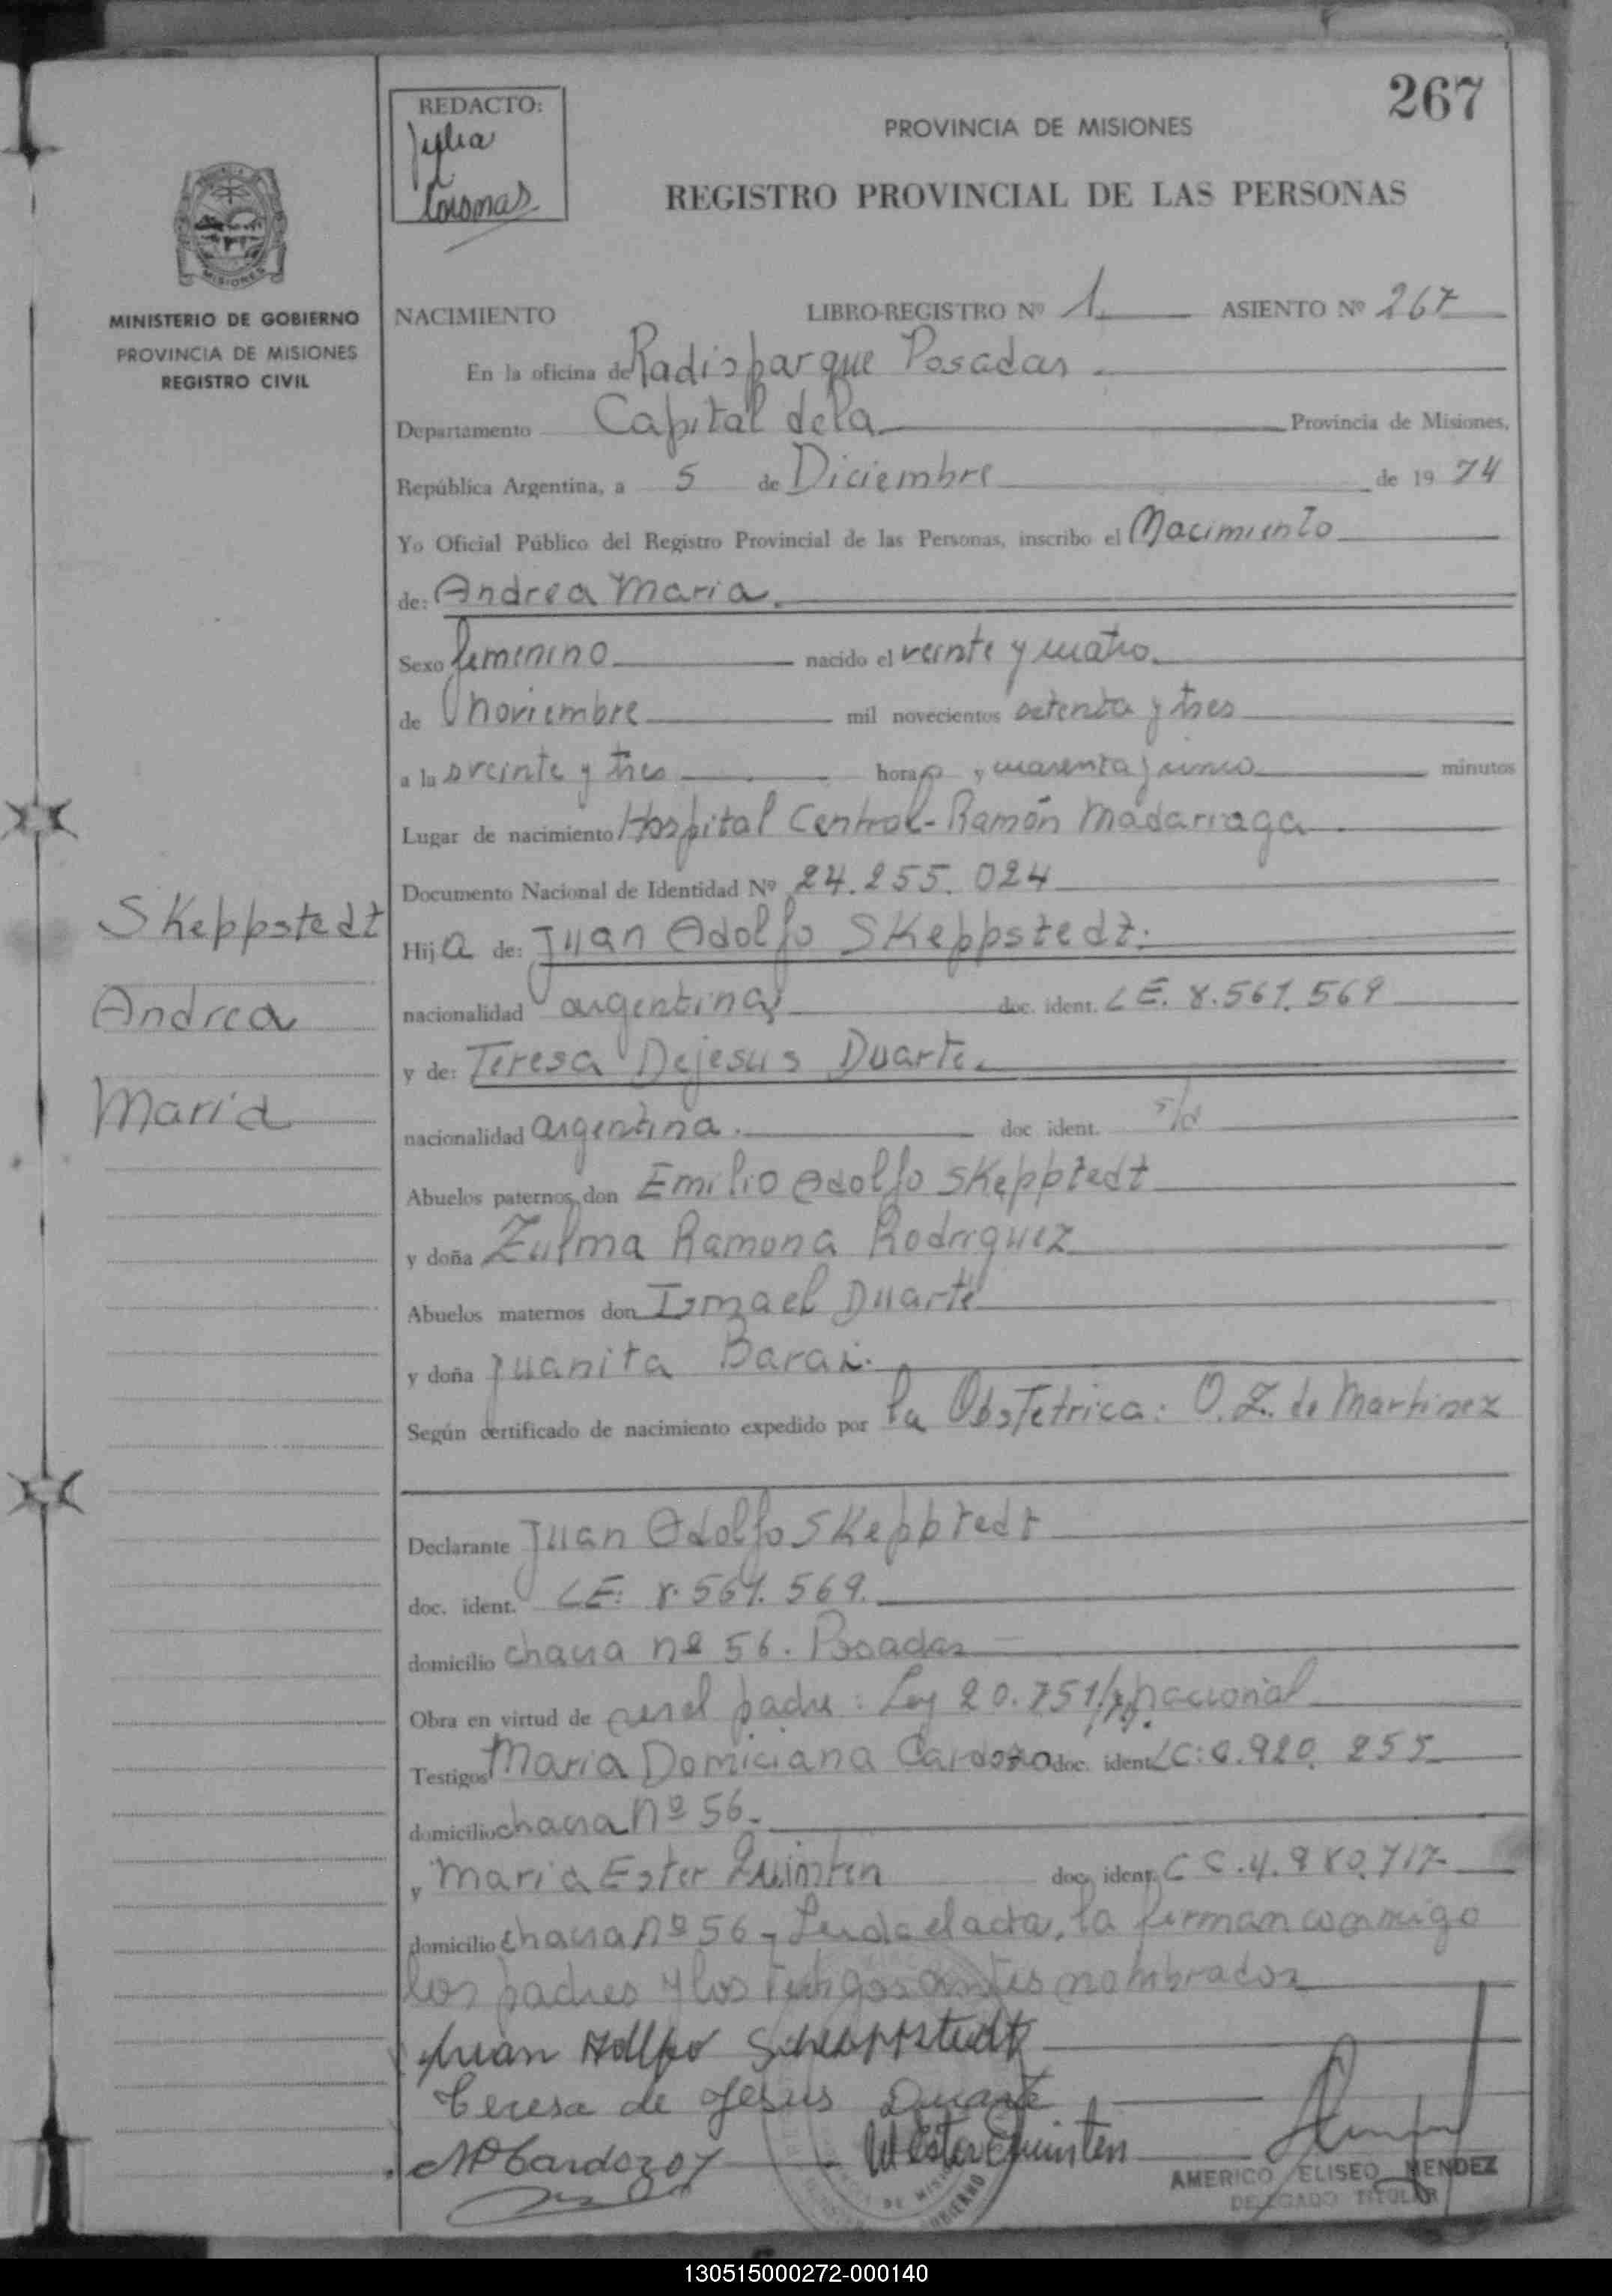 267
REDACTO:
Julia
Coromas
PROVINCIA DE MISIONES
REGISTRO PROVINCIAL DE LAS PERSONAS
MISIONES
MINISTERIO DE GOBIERNO
PROVINCIA DE MISIONES
REGISTRO CIVIL
NACIMIENTO LIBRO-REGISTRO Nº 1 ASIENTO Nº 267
En la oficina de Radisparque Posadas
Departamento Capital dela Provincia de Misiones,
República Argentina, a 5 de Diciembre de 1974
Yo Oficial Público del Registro Provincial de las Personas, inscribo el Nacimiento
de: Andrea Maria
Sexo femenino nacido el veinte y cuatro
de noviembre mil novecientos setenta y tres
a las veinte y tres horas y cuarenta y cinco minutos
Lugar de nacimiento Hospital Central-Ramón Madariaga
Documento Nacional de Identidad Nº 24.255.024
Skeppstedt
Andrea
Maria
Hija de: Juan Adolfo Skeppstedt.
nacionalidad argentina doc. ident. LE. 8.561.569
y de: Teresa Dejesus Duarte.
nacionalidad argentina. doc ident. s/d
Abuelos paternos, don Emilio Adolfo Skepptedt
y doña Zulma Ramona Rodriguez
Abuelos maternos don Ismael Duarte
y doña Juanita Barai.
Según certificado de nacimiento expedido por la Obstetrica: O. Z. de Martinez
Declarante Juan Adolfo Skepptedt
doc. ident. LE: 8.561.569.
domicilio chacra nº 56. Posadas
Obra en virtud de ser el padre: Ley 20.751/ nacional
Testigos Maria Domiciana Cardozo doc. ident LC: 6.920.255
domicilio chacra Nº 56.
y Maria Ester Quinten doc. ident. L C. 4.980.717
domicilio chacra Nº 56 - Leida el acta, la firman conmigo
los padres y los testigos antes nombrados
Juan Adolfo Scheappstedt
Teresa de Jesus Duarte
MDCardozo M Ester Quinten
AMERICO ELISEO MENDEZ
DELEGADO TITULAR
130515000272-000140